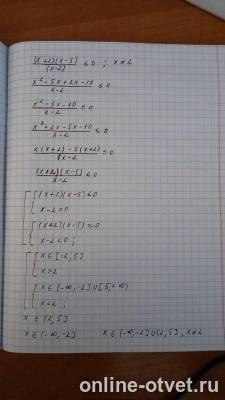 (x+2)(x-5)/(x-2) ≤ 0 ; x≠2
x²-5x+2x-10/x-2 ≤ 0
x²-3x-10/x-2 ≤ 0
x²+2x-5x-10/x-2 ≤ 0
x(x+2)-5(x+2)/x-2 ≤ 0
(x+2)(x-5)/x-2 ≤ 0
(x+2)(x-5)≤0
x-2>0
(x+2)(x-5)≥0
x-2<0;
x∈[-2;5]
x>2
x∈(-∞,-2]∪[5,+∞)
x<2;
x∈(2;5]
x∈(-∞,-2] x∈(-∞,-2]∪(2;5], x≠2
online-otvet.ru